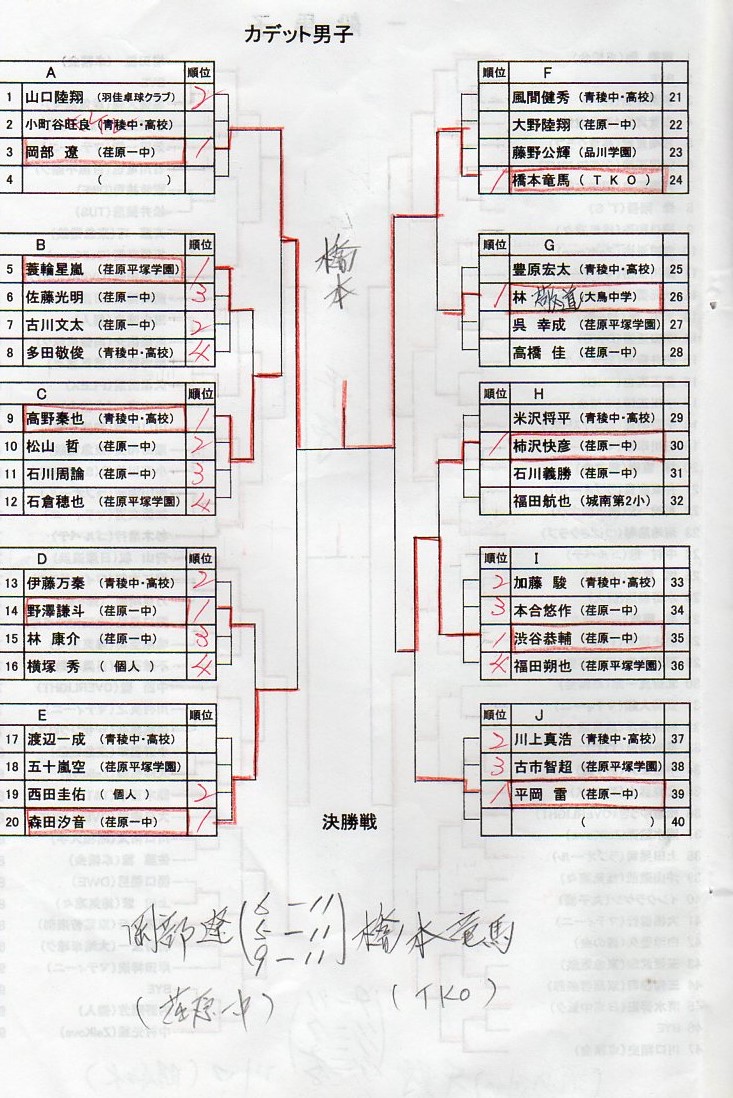 カデット男子
A 順位
1 山口陸翔 (羽佳卓球クラブ) 2
2 小町谷旺良 (青稜中・高校)
3 岡部 遼 (荏原一中) 1
4 ( )
B 順位
5 蓑輪星嵐 (荏原平塚学園) 1
6 佐藤光明 (荏原一中) 3
7 古川文太 (荏原一中) 2
8 多田敬俊 (青稜中・高校) 4
C 順位
9 高野秦也 (青稜中・高校) 1
10 松山 哲 (荏原一中) 2
11 石川周諭 (荏原一中) 3
12 石倉穂也 (荏原平塚学園) 4
D 順位
13 伊藤万秦 (青稜中・高校) 2
14 野澤謙斗 (荏原一中) 1
15 林 康介 (荏原一中) 3
16 横塚 秀 (個人) 4
E 順位
17 渡辺一成 (青稜中・高校)
18 五十嵐空 (荏原平塚学園)
19 西田圭佑 (個人) 2
20 森田汐音 (荏原一中) 1
橋本
順位 F
風間健秀 (青稜中・高校) 21
大野陸翔 (荏原一中) 22
藤野公輝 (品川学園) 23
1 橋本竜馬 (TKO) 24
順位 G
豊原宏太 (青稜中・高校) 25
1 林 敬道 (大鳥中学) 26
呉 幸成 (荏原平塚学園) 27
高橋 佳 (荏原一中) 28
順位 H
米沢将平 (青稜中・高校) 29
1 柿沢快彦 (荏原一中) 30
石川義勝 (荏原一中) 31
福田航也 (城南第2小) 32
順位 I
2 加藤 駿 (青稜中・高校) 33
3 本合悠作 (荏原一中) 34
1 渋谷恭輔 (荏原一中) 35
4 福田朔也 (荏原平塚学園) 36
順位 J
2 川上真浩 (青稜中・高校) 37
3 古市智超 (荏原平塚学園) 38
1 平岡 雷 (荏原一中) 39
( ) 40
決勝戦
6-11
岡部遼 5-11 橋本竜馬
9-11
(荏原一中) (TKO)